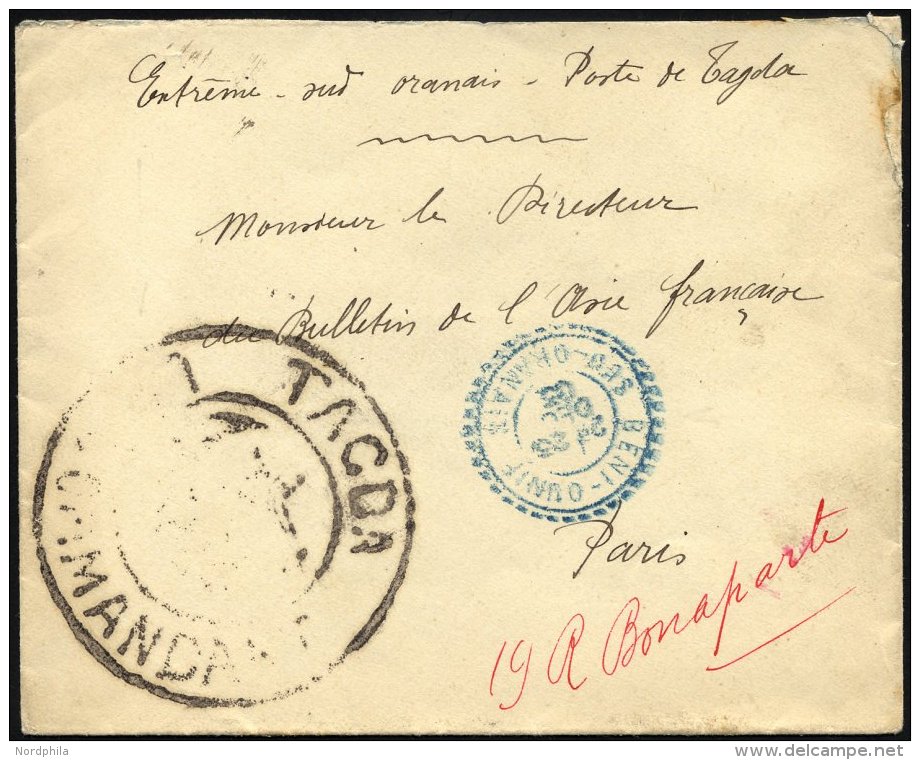 Extrême - sud oranais - Poste de Tagda
Monsieur le Directeur
du Bulletin de l'Asie française
TAGDA
COMMANDANT
BENI-OUNIF
SUD-ORANAIS
25
Paris
19 R Bonaparte
Nordphila
www.delcampe.net